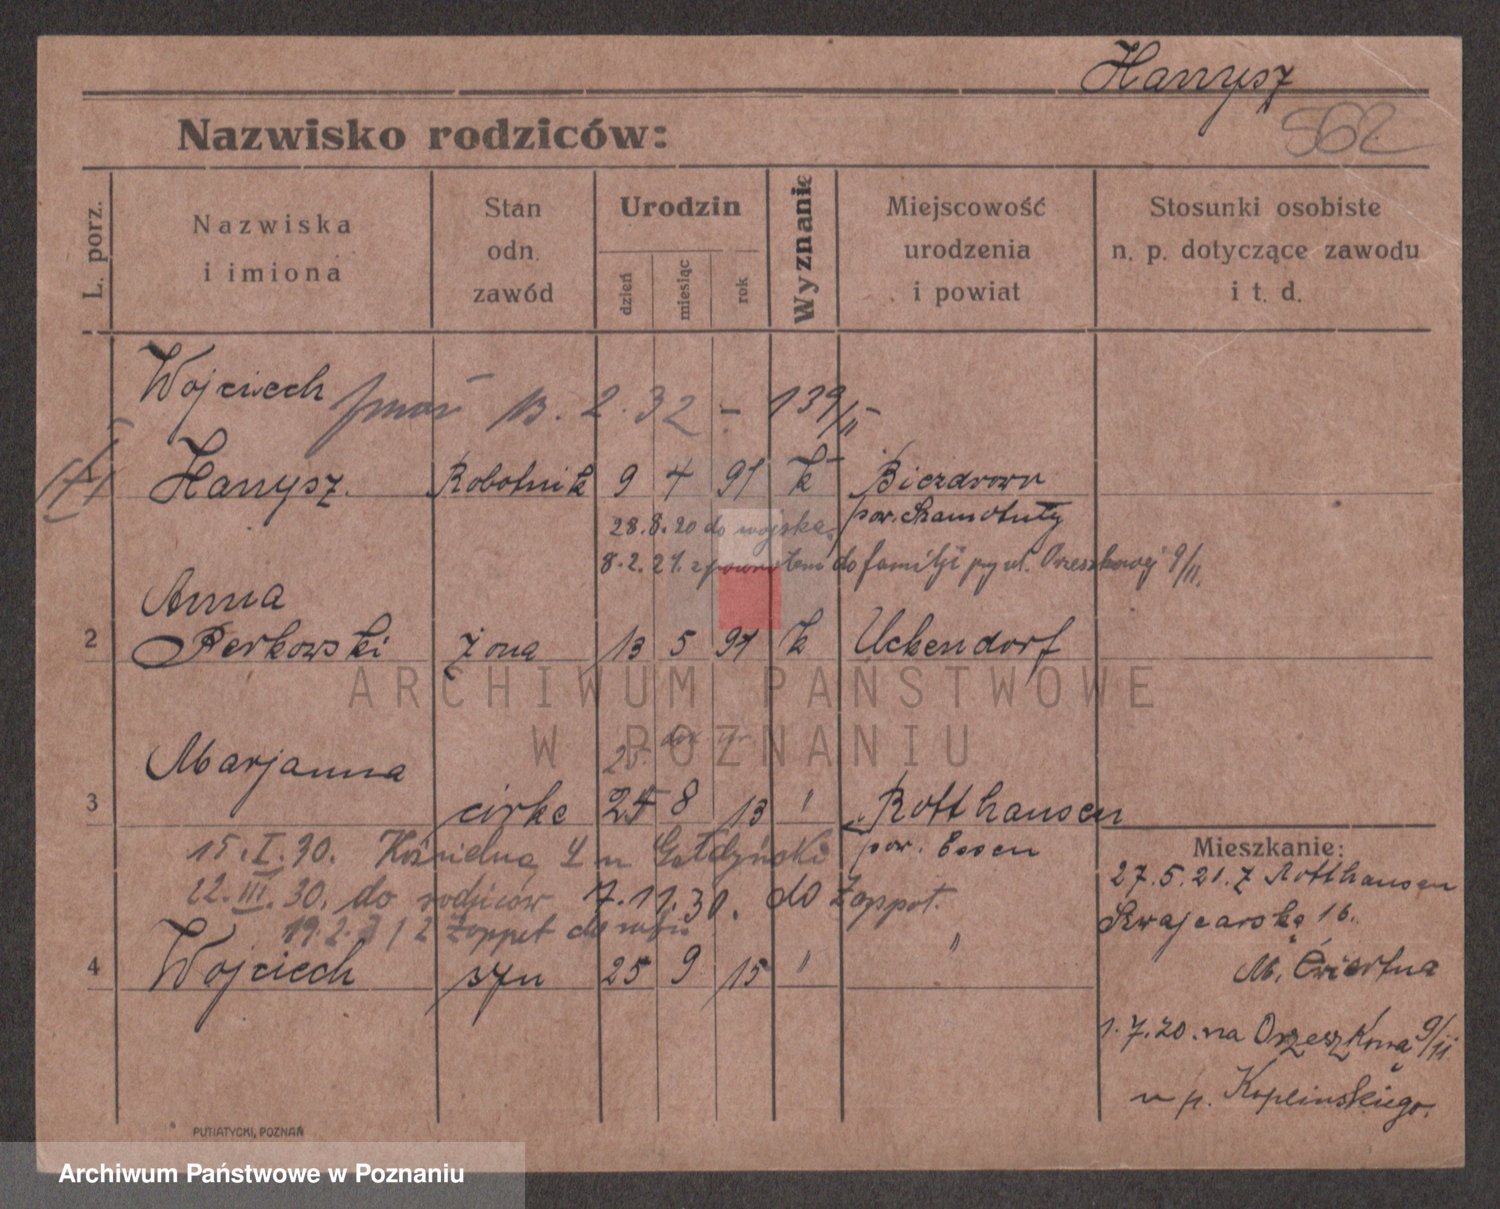 Hanysz
562
Nazwisko rodziców:
L. porz.
Nazwiska
i imiona
Stan
odn.
zawód
Urodzin
dzień
miesiąc
rok
Wyznanie
Miejscowość
urodzenia
i powiat
Stosunki osobiste
n. p. dotyczące zawodu
i t. d.
Wojciech 13. 2. 32 – 139/II
Hanysz. Robotnik 9 4 91 k Biezdrowo
28.8.20 do wojska, pow. Szamotuły
8.2.21. z powrotem do familji przy ul. Orzeszkowej 9/II.
Anna
2 Berkowski żona 13 5 91 k Uckendorf
Marjanna
3 córke 24 8 13 " Rotthausen
15.I.30. Kościelna 4 u
pow. Essen
22.III.30. do rodziców 7.11.30. do Zoppot.
19.2.31 z Zoppot do
4 Wojciech syn 25 9 15 " "
Mieszkanie:
27.5.21. z Rotthausen
Szwajcarska 16.
M. Ćwiertnia
1.7.20. na Orzeszkową 9/II
u p. Koplinskiego.
PUTIATYCKI, POZNAŃ
ARCHIWUM PAŃSTWOWE
W POZNANIU
Archiwum Państwowe w Poznaniu